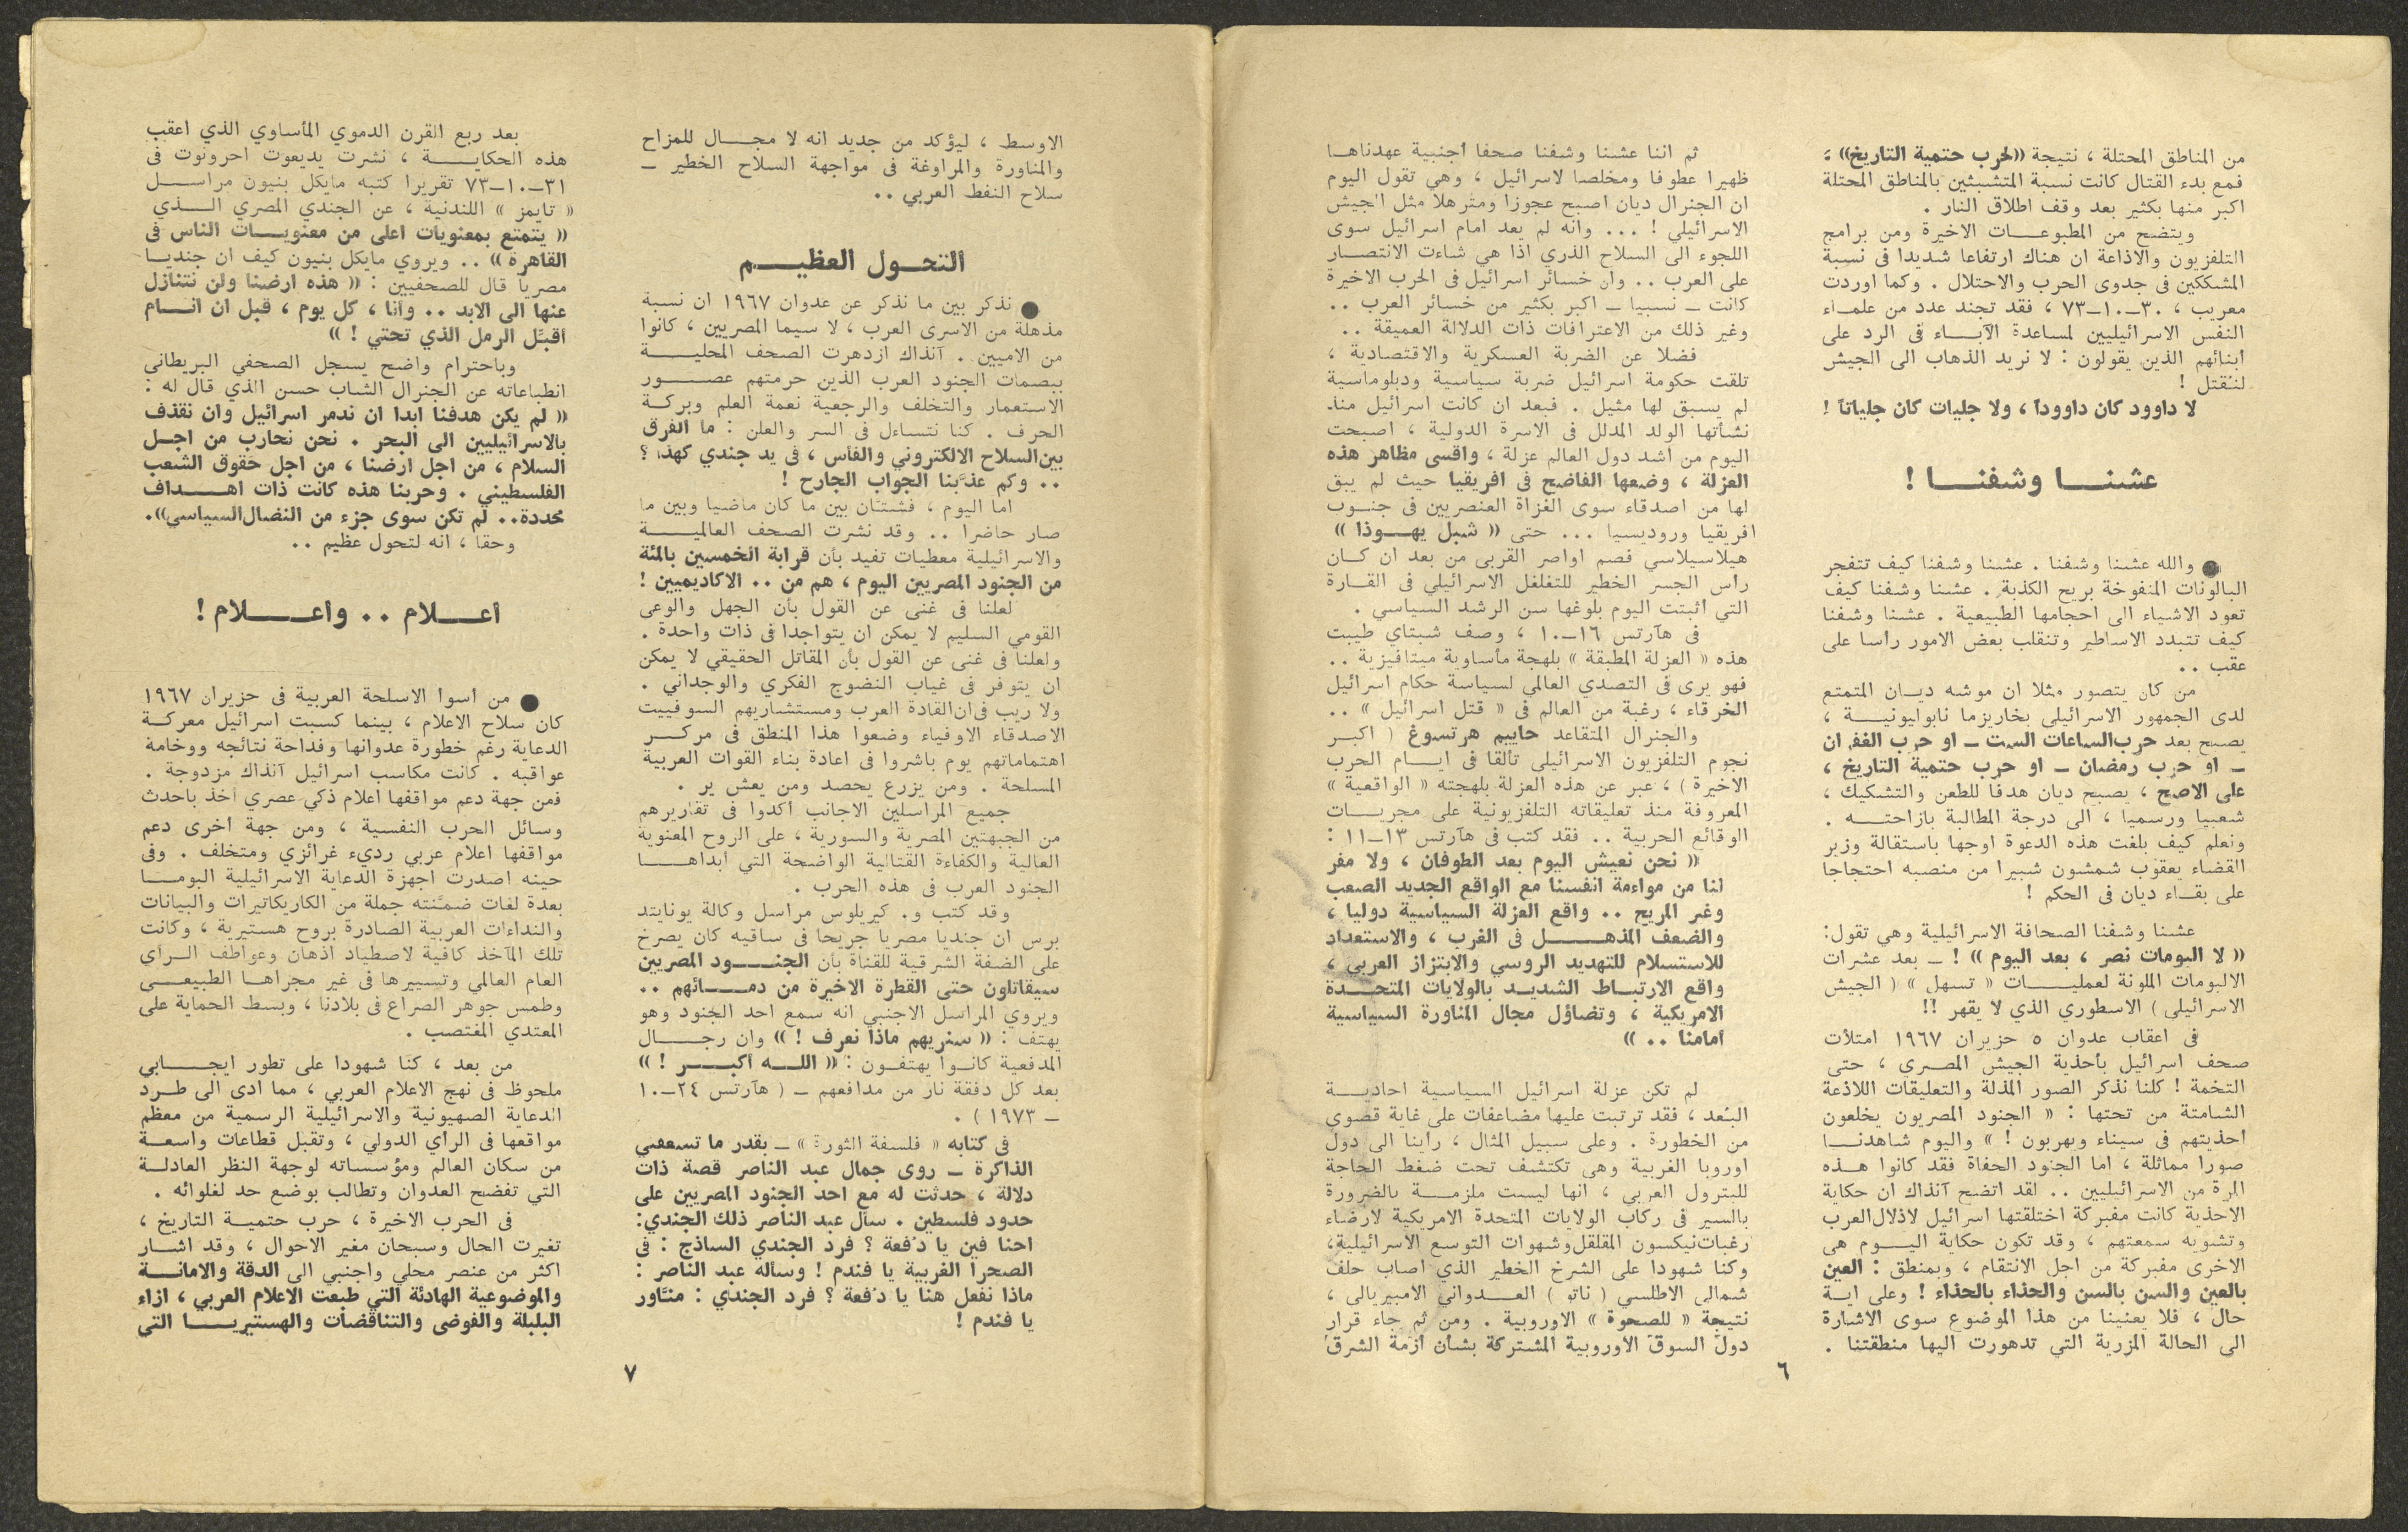 من المناطق المحتلة ، نتيجة «لحرب حتمية التاريخ» ،
فمع بدء القتال كانت نسبة المتشبثين بالمناطق المحتلة
اكبر منها بكثير بعد وقف اطلاق النار .
ويتضح من المطبوعــات الاخيرة ومن برامج
التلفزيون والاذاعة ان هناك ارتفاعا شديدا فى نسبة
المشككين فى جدوى الحرب والاحتلال . وكما اوردت
معريب ، ٣٠–١٠–٧٣ ، فقد تجند عدد من علمـاء
النفس الاسرائيليين لمساعدة الآبــاء فى الرد على
ابنائهم الذين يقولون : لا نريد الذهاب الى الجيش
لنُقتل !
لا داوود كان داووداً ، ولا جليات كان جلياتاً !
عشنــا وشفنــا !
● والله عشنا وشفنا . عشنا وشفنا كيف تتفجر
البالونات المنفوخة بريح الكذبة . عشنا وشفنا كيف
تعود الاشياء الى احجامها الطبيعية . عشنا وشفنا
كيف تتبدد الاساطير وتنقلب بعض الامور رأسا على
عقب ..
من كان يتصور مثلا ان موشه ديـان المتمتع
لدى الجمهور الاسرائيلي بخاريزما نابوليونيــة ،
يصبح بعد حرب الساعات الست – او حرب الغفران
– او حرب رمضان – او حرب حتمية التاريخ ،
على الاصح ، يصبح ديان هدفا للطعن والتشكيك ،
شعبيا ورسميا ، الى درجة المطالبة بازاحتــه .
ونعلم كيف بلغت هذه الدعوة اوجها باستقالة وزير
القضاء يعقوب شمشون شبيرا من منصبه احتجاجا
على بقـاء ديان فى الحكم !
عشنا وشفنا الصحافة الاسرائيلية وهي تقول:
« لا البومات نصر ، بعد اليوم » ! – بعد عشرات
الالبومات الملونة لعمليــات « تسهل » ( الجيش
الاسرائيلي ) الاسطوري الذي لا يقهر !!
فى اعقاب عدوان ٥ حزيران ١٩٦٧ امتلأت
صحف اسرائيل بأحذية الجيش المصـري ، حتى
التخمة ! كلنا نذكر الصور المذلة والتعليقات اللاذعة
الشامتة من تحتها : « الجنود المصريون يخلعون
احذيتهم فى سيناء ويهربون ! » واليوم شاهدنــا
صورا مماثلة ، اما الجنود الحفاة فقد كانوا هـذه
المرة من الاسرائيليين .. لقد اتضح آنذاك ان حكاية
الاحذية كانت مفبركة اختلقتها اسرائيل لاذلال العرب
وتشويه سمعتهم ، وقد تكون حكاية اليــوم هى
الاخرى مفبركة من اجل الانتقام ، وبمنطق : العين
بالعين والسن بالسن والحذاء بالحذاء ! وعلى ايـة
حال ، فلا يعنينا من هذا الموضوع سوى الاشارة
الى الحالة المزرية التي تدهورت اليها منطقتنا .
ثم اننا عشنا وشفنا صحفا أجنبية عهدناهـا
ظهيرا عطوفا ومخلصا لاسرائيل ، وهي تقول اليوم
ان الجنرال ديان اصبح عجوزا ومترهلا مثل الجيش
الاسرائيلي ! ... وانه لم يعد امام اسرائيل سوى
اللجوء الى السلاح الذري اذا هي شاءت الانتصـار
على العرب .. وان خسائر اسرائيل فى الحرب الاخيرة
كانت – نسبيا – اكبر بكثير من خسائر العرب ..
وغير ذلك من الاعترافات ذات الدلالة العميقة ..
فضلا عن الضربة العسكرية والاقتصادية ،
تلقت حكومة اسرائيل ضربة سياسية ودبلوماسية
لم يسبق لها مثيل . فبعد ان كانت اسرائيل منذ
نشأتها الولد المدلل فى الاسرة الدولية ، اصبحت
اليوم من اشد دول العالم عزلة ، واقسى مظاهر هذه
العزلة ، وضعها الفاضح فى افريقيا حيث لم يبق
لها من اصدقاء سوى الغزاة العنصريين فى جنـوب
افريقيا وروديسيا ... حتى « شبل يهــوذا »
هيلاسيلاسي فصم اواصر القربى من بعد ان كـان
رأس الجسر الخطير للتغلغل الاسرائيلي فى القـارة
التي اثبتت اليوم بلوغها سن الرشد السياسي .
فى هآرتس ١٦–١٠ ، وصف شبتاي طيبت
هذه « العزلة المطبقة » بلهجة مأساوية ميتافيزية ..
فهو يرى فى التصدي العالمي لسياسة حكام اسرائيل
الخرقاء ، رغبة من العالم فى « قتل اسرائيل » ..
والجنرال المتقاعد حاييم هرتسوغ ( اكبـر
نجوم التلفزيون الاسرائيلي تألقا فى ايــام الحرب
الاخيرة ) ، عبر عن هذه العزلة بلهجته « الواقعية »
المعروفة منذ تعليقاته التلفزيونية على مجريــات
الوقائع الحربية .. فقد كتب فى هآرتس ١٣–١١ :
« نحن نعيش اليوم بعد الطوفان ، ولا مفر
لنا من مواءمة انفسنا مع الواقع الجديد الصعب
وغير المريح .. واقع العزلة السياسية دوليا ،
والضعف المذهــل فى الغرب ، والاستعداد
للاستسلام للتهديد الروسي والابتزاز العربي ،
واقع الارتبـاط الشديـد بالولايات المتحـدة
الامريكية ، وتضاؤل مجال المناورة السياسية
امامنا .. »
لم تكن عزلة اسرائيل السياسية احاديــة
البُعد ، فقد ترتبت عليها مضاعفات على غاية قصوى
من الخطورة . وعلى سبيل المثال ، رأينا الى دول
اوروبا الغربية وهى تكتشف تحت ضغط الحاجة
للبترول العربي ، انها ليست ملزمــة بالضرورة
بالسير فى ركاب الولايات المتحدة الامريكية لارضاء
رغبات نيكسون المقلقل وشهوات التوسع الاسرائيلية،
وكنا شهودا على الشرخ الخطير الذي اصاب حلف
شمالي الاطلسي ( ناتو ) العــدواني الامبيريالى ،
نتيجة « للصحوة » الاوروبية . ومن ثم جاء قرار
دول السوق الاوروبية المشتركة بشأن ازمة الشرق
٦
الاوسط ، ليؤكد من جديد انه لا مجــال للمزاح
والمناورة والمراوغة فى مواجهة السلاح الخطير –
سلاح النفط العربي ..
التحــول العظيــم
● نذكر بين ما نذكر عن عدوان ١٩٦٧ ان نسبة
مذهلة من الاسرى العرب ، لا سيما المصريين ، كانوا
من الاميين . آنذاك ازدهرت الصحف المحليــة
ببصمات الجنود العرب الذين حرمتهم عصــور
الاستعمار والتخلف والرجعية نعمة العلم وبركـة
الحرف . كنا نتساءل فى السر والعلن : ما الفرق
بين السلاح الالكتروني والفأس ، فى يد جندي كهذا ؟
.. وكم عذّبنا الجواب الجارح !
اما اليوم ، فشتّان بين ما كان ماضيا وبين ما
صار حاضرا .. وقد نشرت الصحف العالميــة
والاسرائيلية معطيات تفيد بأن قرابة الخمسين بالمئة
من الجنود المصريين اليوم ، هم من .. الاكاديميين !
لعلنا فى غنى عن القول بأن الجهل والوعى
القومي السليم لا يمكن ان يتواجدا فى ذات واحدة .
ولعلنا فى غنى عن القول بأن المقاتل الحقيقي لا يمكن
ان يتوفر فى غياب النضوج الفكري والوجداني .
ولا ريب فى ان القادة العرب ومستشاريهم السوفييت
الاصدقاء الاوفياء وضعوا هذا المنطق فى مركــز
اهتماماتهم يوم باشروا فى اعادة بناء القوات العربية
المسلحة . ومن يزرع يحصد ومن يعش ير .
جميع المراسلين الاجانب أكدوا فى تقاريرهم
من الجبهتين المصرية والسورية ، على الروح المعنوية
العالية والكفاءة القتالية الواضحة التي ابداهــا
الجنود العرب فى هذه الحرب .
وقد كتب و. كيريلوس مراسل وكالة يونايتد
برس ان جنديا مصريا جريحا فى ساقيه كان يصرخ
على الضفة الشرقية للقناة بأن الجنــود المصريين
سيقاتلون حتى القطرة الاخيرة من دمــائهم ..
ويروي المراسل الاجنبي انه سمع احد الجنود وهو
يهتف : « سنريهم ماذا نعرف ! » وان رجــال
المدفعية كانـوا يهتفـون : « اللــه اكبــر ! »
بعد كل دفقة نار من مدافعهم – ( هآرتس ٢٤–١٠
– ١٩٧٣ ) .
فى كتابه « فلسفة الثورة » – بقدر ما تسعفني
الذاكرة – روى جمال عبد الناصر قصة ذات
دلالة ، حدثت له مع احد الجنود المصريين على
حدود فلسطين . سأل عبد الناصر ذلك الجندي:
احنا فين يا دفعة ؟ فرد الجندي الساذج : فى
الصحرا الغربية يا فندم ! وسأله عبد الناصر :
ماذا نفعل هنا يا دفعة ؟ فرد الجندي : منّاور
يا فندم !
٧
بعد ربع القرن الدموي المأساوي الذي اعقب
هذه الحكايــة ، نشرت يديعوت احرونوت فى
٣١–١٠–٧٣ تقريرا كتبه مايكل بنيون مراسـل
« تايمز » اللندنية ، عن الجندي المصري الــذي
« يتمتع بمعنويات اعلى من معنويــات الناس فى
القاهرة » .. ويروي مايكل بنيون كيف ان جنديـا
مصريا قال للصحفيين : « هذه ارضنا ولن نتنازل
عنها الى الابد .. وانا ، كل يوم ، قبل ان انــام
اقبّل الرمل الذي تحتي ! »
وباحترام واضح يسجل الصحفي البريطاني
انطباعاته عن الجنرال الشاب حسن الذي قال له :
« لم يكن هدفنا ابدا ان ندمر اسرائيل وان نقذف
بالاسرائيليين الى البحر . نحن نحارب من اجـل
السلام ، من اجل ارضنا ، من اجل حقوق الشعب
الفلسطيني . وحربنا هذه كانت ذات اهــداف
محددة.. لم تكن سوى جزء من النضال السياسي».
وحقا ، انه لتحول عظيم ..
اعــلام .. واعــلام !
● من اسوا الاسلحة العربية فى حزيران ١٩٦٧
كان سلاح الاعلام ، بينما كسبت اسرائيل معركـة
الدعاية رغم خطورة عدوانها وفداحة نتائجه ووخامة
عواقبه . كانت مكاسب اسرائيل آنذاك مزدوجة .
فمن جهة دعم مواقفها اعلام ذكي عصري أخذ باحدث
وسائل الحرب النفسية ، ومن جهة أخرى دعم
مواقفها اعلام عربي رديء غرائزي ومتخلف . وفى
حينه اصدرت اجهزة الدعاية الاسرائيلية البومــا
بعدة لغات ضمّنته جملة من الكاريكاتيرات والبيانات
والنداءات العربية الصادرة بروح هستيرية ، وكانت
تلك المآخذ كافية لاصطياد اذهان وعواطف الـرأي
العام العالمي وتسييرها فى غير مجراهـا الطبيعــى
وطمس جوهر الصراع فى بلادنا ، وبسط الحماية على
المعتدي المغتصب .
من بعد ، كنا شهودا على تطور ايجــابي
ملحوظ فى نهج الاعلام العربي ، مما ادى الى طـرد
الدعاية الصهيونية والاسرائيلية الرسمية من معظم
مواقعها فى الرأي الدولي ، وتقبل قطاعات واسعـة
من سكان العالم ومؤسساته لوجهة النظر العادلـة
التي تفضح العدوان وتطالب بوضع حد لغلوائه .
فى الحرب الاخيرة ، حرب حتميـة التاريخ ،
تغيرت الحال وسبحان مغير الاحوال ، وقد اشـار
اكثر من عنصر محلي واجنبي الى الدقة والامانــة
والموضوعية الهادئة التي طبعت الاعلام العربي ، ازاء
البلبلة والفوضى والتناقضات والهستيريــا التي